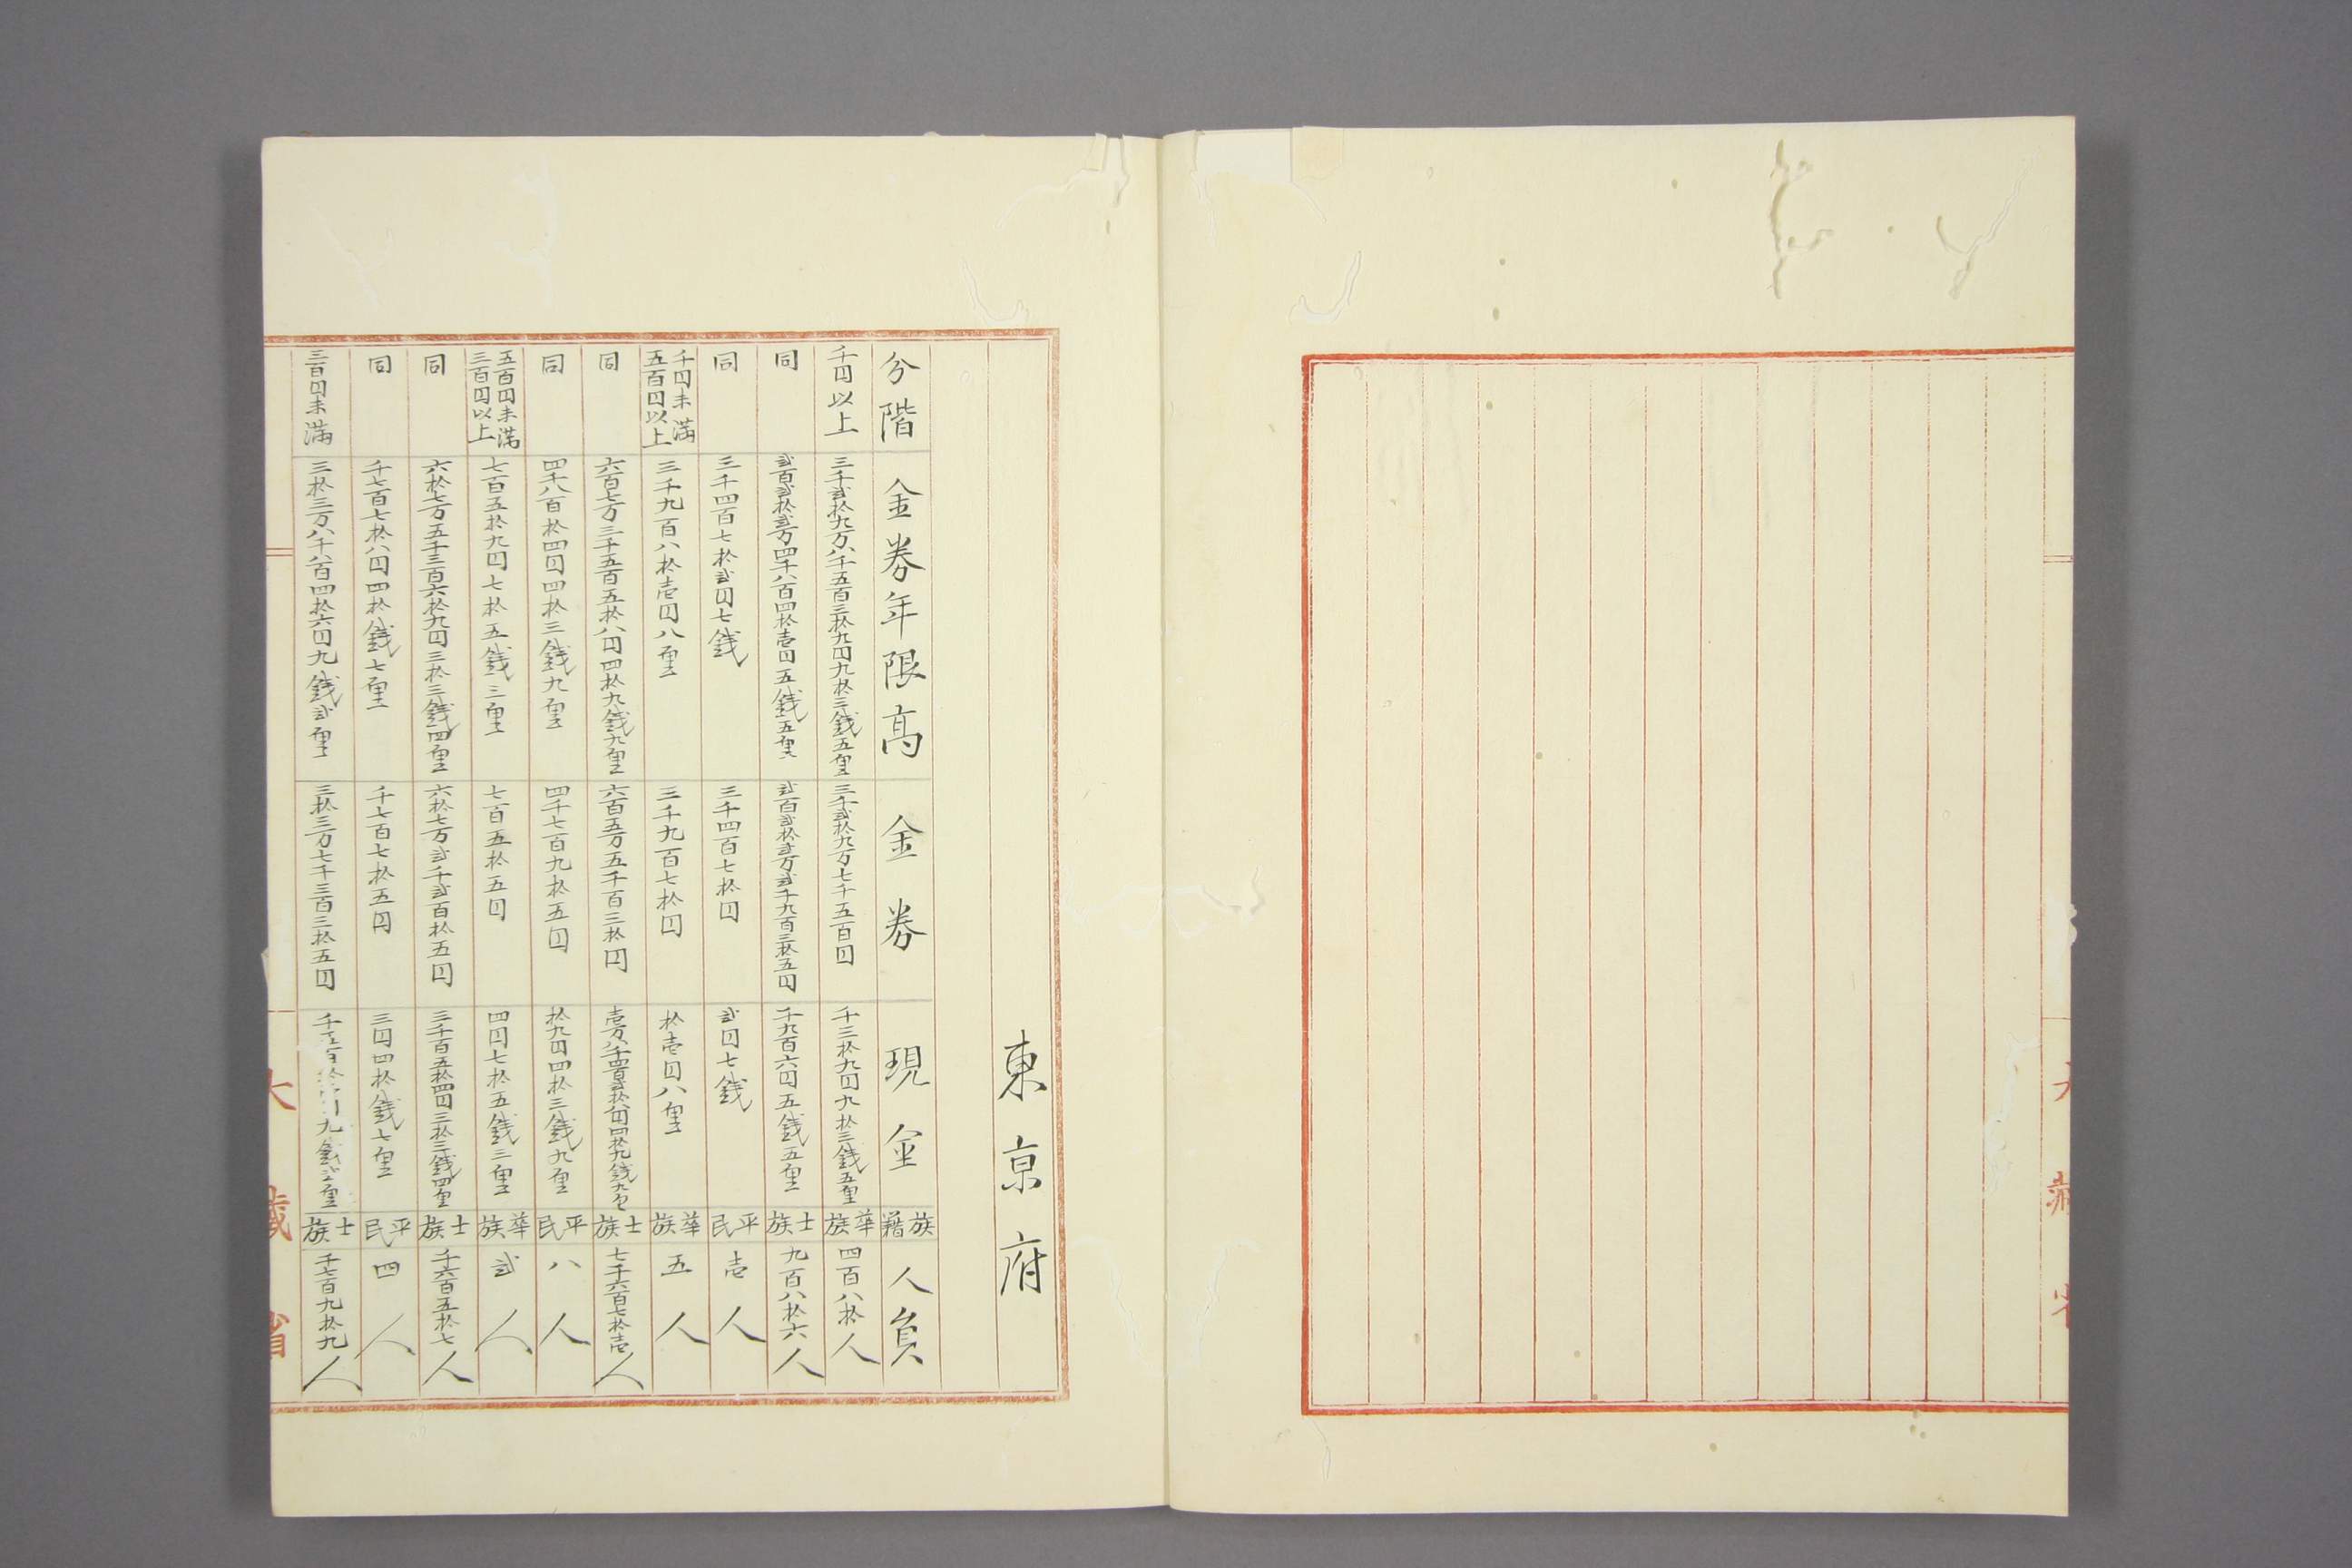 東京府
分階 金券年限高 金券 現金 族籍 人員
千円以上 三千弐拾九万八千五百三拾九円九拾三銭五厘 三千弐拾九万七千五百円 千三拾九円九拾三銭五厘 華族 四百八拾人
同 弐百弐拾弐万四千八百四拾壱円五銭五厘 弐百弐拾弐万弐千九百三拾五円 千九百六円五銭五厘 士族 九百八拾六人
同 三千四百七拾弐円七銭 三千四百七拾円 弐円七銭 平民 壱人
千円未満五百円以上 三千九百八拾壱円八厘 三千九百七拾円 拾壱円八厘 華族 五人
同 六百七万三千五百五拾八円四拾九銭九厘 六百五万五千百三拾円 壱万八千四百弐拾八円四拾九銭九厘 士族 七千六百七拾壱人
同 四千八百拾四円四拾三銭九厘 四千七百九拾五円 拾九円四拾三銭九厘 平民 八人
五百円未満三百円以上 七百五拾九円七拾五銭三厘 七百五拾五円 四円七拾五銭三厘 華族 弐人
同 六拾七万五千三百六拾九円三拾三銭四厘 六拾七万弐千弐百拾五円 三千百五拾四円三拾三銭四厘 士族 千六百五拾七人
同 千七百七拾八円四拾銭七厘 千七百七拾五円 三円四拾銭七厘 平民 四人
三百円未満 三拾三万八千八百四拾六円九銭弐厘 三拾三万七千三百三拾五円 千五百拾円九銭弐厘 士族 千七百九拾九人
大藏省